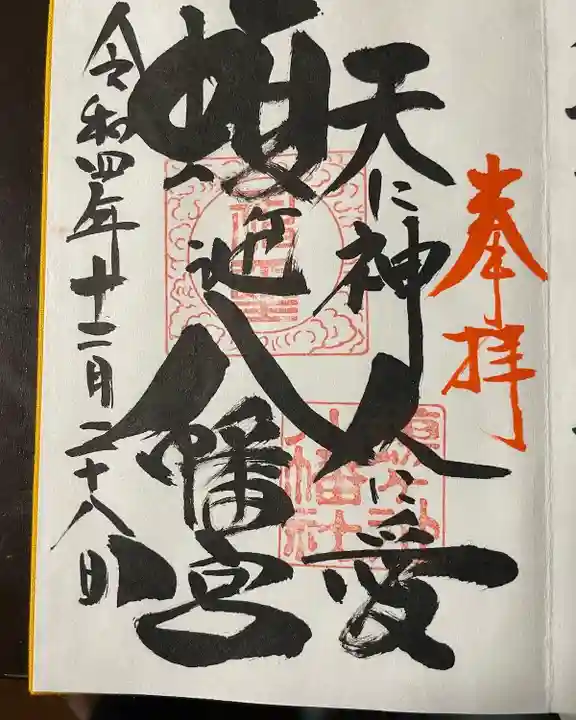 奉拝
天に神人に愛
蝮ヶ池八幡宮
令和四年十二月二十八日
八幡社